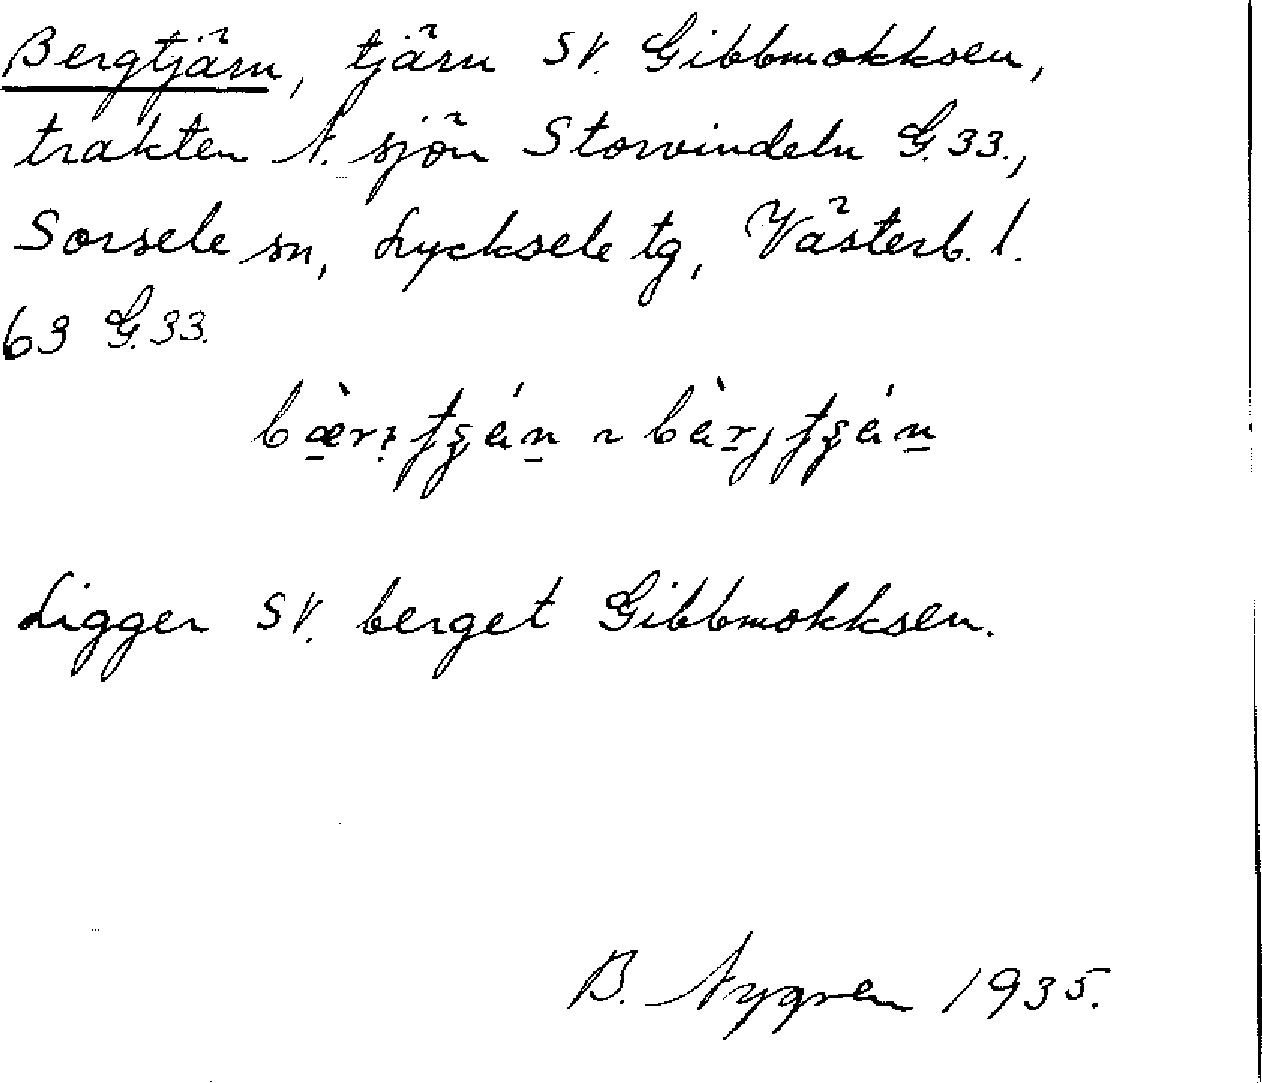 Bergtjärn, tjärn SV. Gibbmokksen,
trakten N. sjön Storvindeln G.33.,
Sorsele sn, Lycksele tg, Västerb. l.
63 G.33.
Ligger SV. berget Gibbmokksen.
B. Nygren 1935.